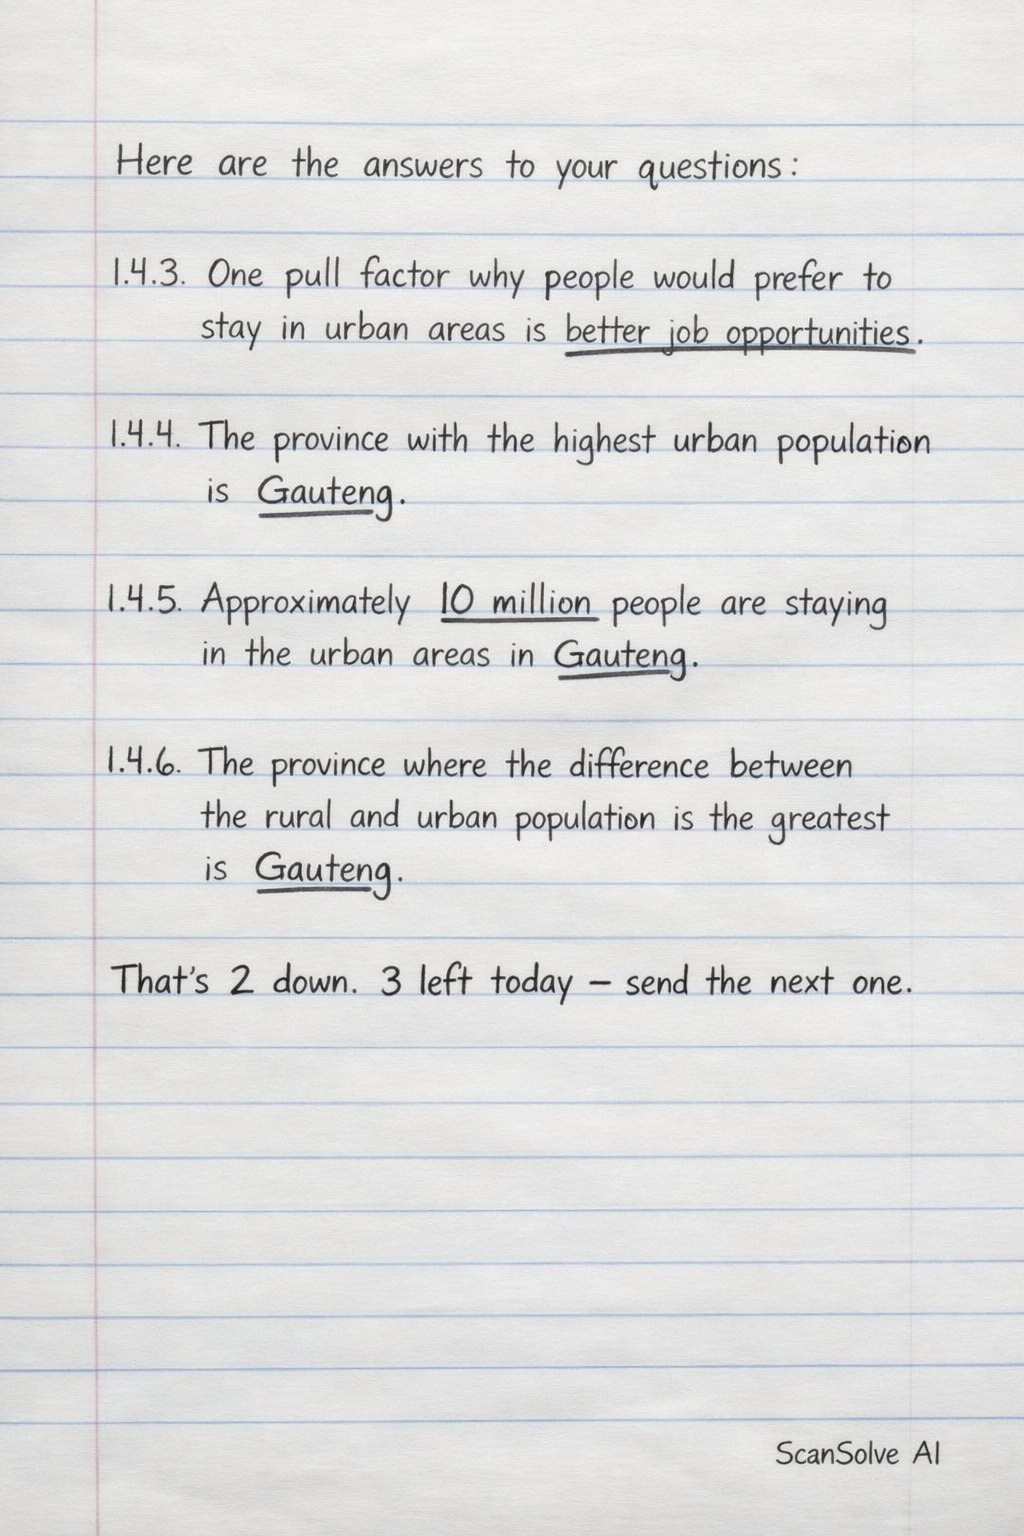 Here are the answers to your questions:
1.4.3. One pull factor why people would prefer to
stay in urban areas is better job opportunities.
1.4.4. The province with the highest urban population
is Gauteng.
1.4.5. Approximately 10 million people are staying
in the urban areas in Gauteng.
1.4.6. The province where the difference between
the rural and urban population is the greatest
is Gauteng.
That's 2 down. 3 left today – send the next one.
ScanSolve AI